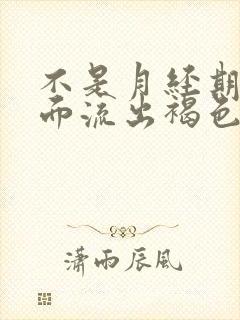 不是月经期
而流出褐色
潇雨辰风